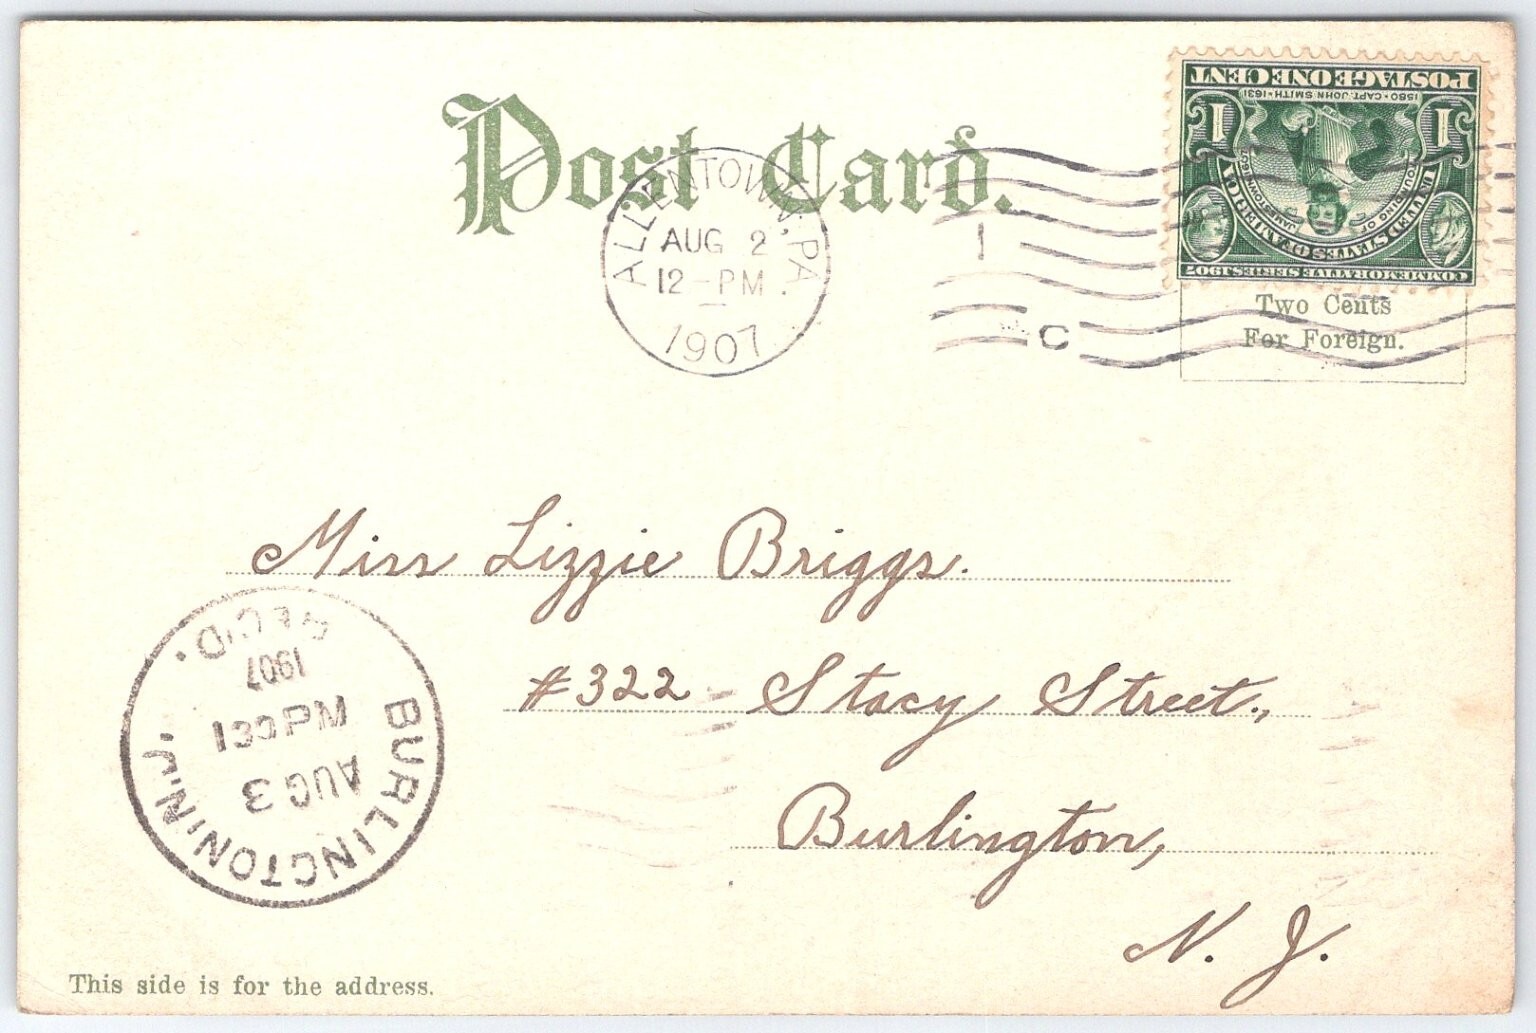 Post Card.
ALLENTOWN, PA.
AUG 2
12-PM
1907
1
C
POSTAGE ONE CENT
1580 · CAPT. JOHN SMITH · 1631
1 1
FOUNDING OF JAMESTOWN 1607
UNITED STATES OF AMERICA
COMMEMORATIVE SERIES 1907
Two Cents
For Foreign.
Miss Lizzie Briggs.
#322 - Stacy Street.,
Burlington,
N. J.
REC'D.
1907
130 PM
AUG 3
BURLINGTON, N.J.
This side is for the address.